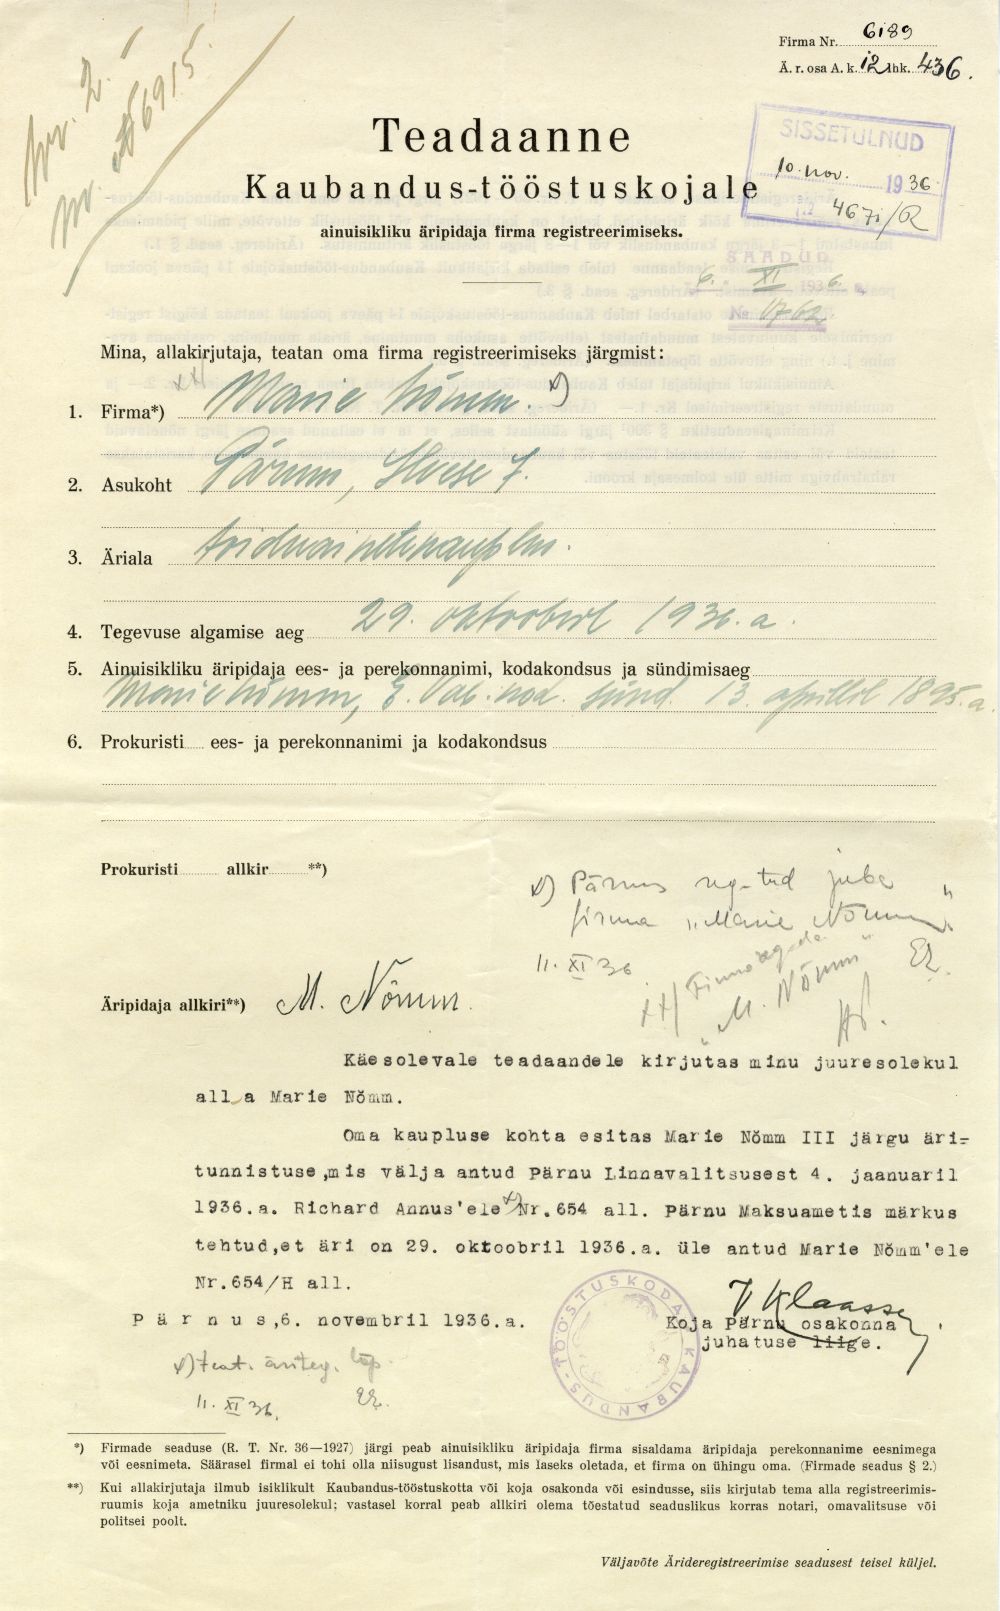 Firma Nr. 6189
Ä. r. osa A. k. 12 lhk. 436.
nr. 2.
nr. 6915.
Teadaanne
Kaubandus-tööstuskojale
ainuisikliku äripidaja firma registreerimiseks.
SISSETULNUD
10. nov. 1936.
467i/R
SAADUD
6. XI 1936. a.
№ 1762
Mina, allakirjutaja, teatan oma firma registreerimiseks järgmist:
xx/
1. Firma*) Marie Nõmm. x)
2. Asukoht Pärnu, 7.
3. Äriala toiduainetekauplus.
4. Tegevuse algamise aeg 29. oktoobril 1936. a.
5. Ainuisikliku äripidaja ees- ja perekonnanimi, kodakondsus ja sündimisaeg
Marie Nõmm, E. Vab. kod. sünd. 13. aprillil 1895. a.
6. Prokuristi ees- ja perekonnanimi ja kodakondsus
Prokuristi allkir **)
x) Pärnus reg-tud juba
firma „Marie Nõmm"
11. XI 36.
xx/ Firma regda
„M. Nõmm"
Äripidaja allkiri**) M. Nõmm.
Käesolevale teadaandele kirjutas minu juuresolekul
alla Marie Nõmm.
Oma kaupluse kohta esitas Marie Nõmm III järgu äri-
tunnistuse,mis välja antud Pärnu Linnavalitsusest 4. jaanuaril
1936.a. Richard Annus'ele x) Nr.654 all. Pärnu Maksuametis märkus
tehtud,et äri on 29. oktoobril 1936.a. üle antud Marie Nõmm'ele
Nr.654/H all.
Pärnus,6. novembril 1936.a.
V Klaassen
Koja Pärnu osakonna
juhatuse liige.
KAUBANDUS-TÖÖSTUSKODA
x) teat. äriteg. lõp.
11. XI 36.
*) Firmade seaduse (R. T. Nr. 36—1927) järgi peab ainuisikliku äripidaja firma sisaldama äripidaja perekonnanime eesnimega
või eesnimeta. Säärasel firmal ei tohi olla niisugust lisandust, mis laseks oletada, et firma on ühingu oma. (Firmade seadus § 2.)
**) Kui allakirjutaja ilmub isiklikult Kaubandus-tööstuskotta või koja osakonda või esindusse, siis kirjutab tema alla registreerimis-
ruumis koja ametniku juuresolekul; vastasel korral peab allkiri olema tõestatud seaduslikus korras notari, omavalitsuse või
politsei poolt.
Väljavõte Ärideregistreerimise seadusest teisel küljel.